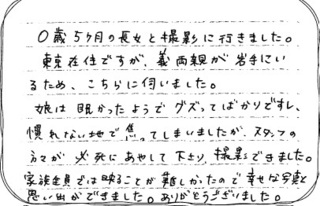 0歳5ヶ月の長女と撮影に行きました。
東京在住ですが、義両親が岩手にい
るため、こちらに伺いました。
娘は眠かったようでグズってばかりですし、
慣れない地で焦ってしまいましたが、スタッフの
方々が必死にあやして下さり、撮影できました。
家族全員では映ることが難しかったので幸せな写真と
思い出ができました。ありがとうございました。